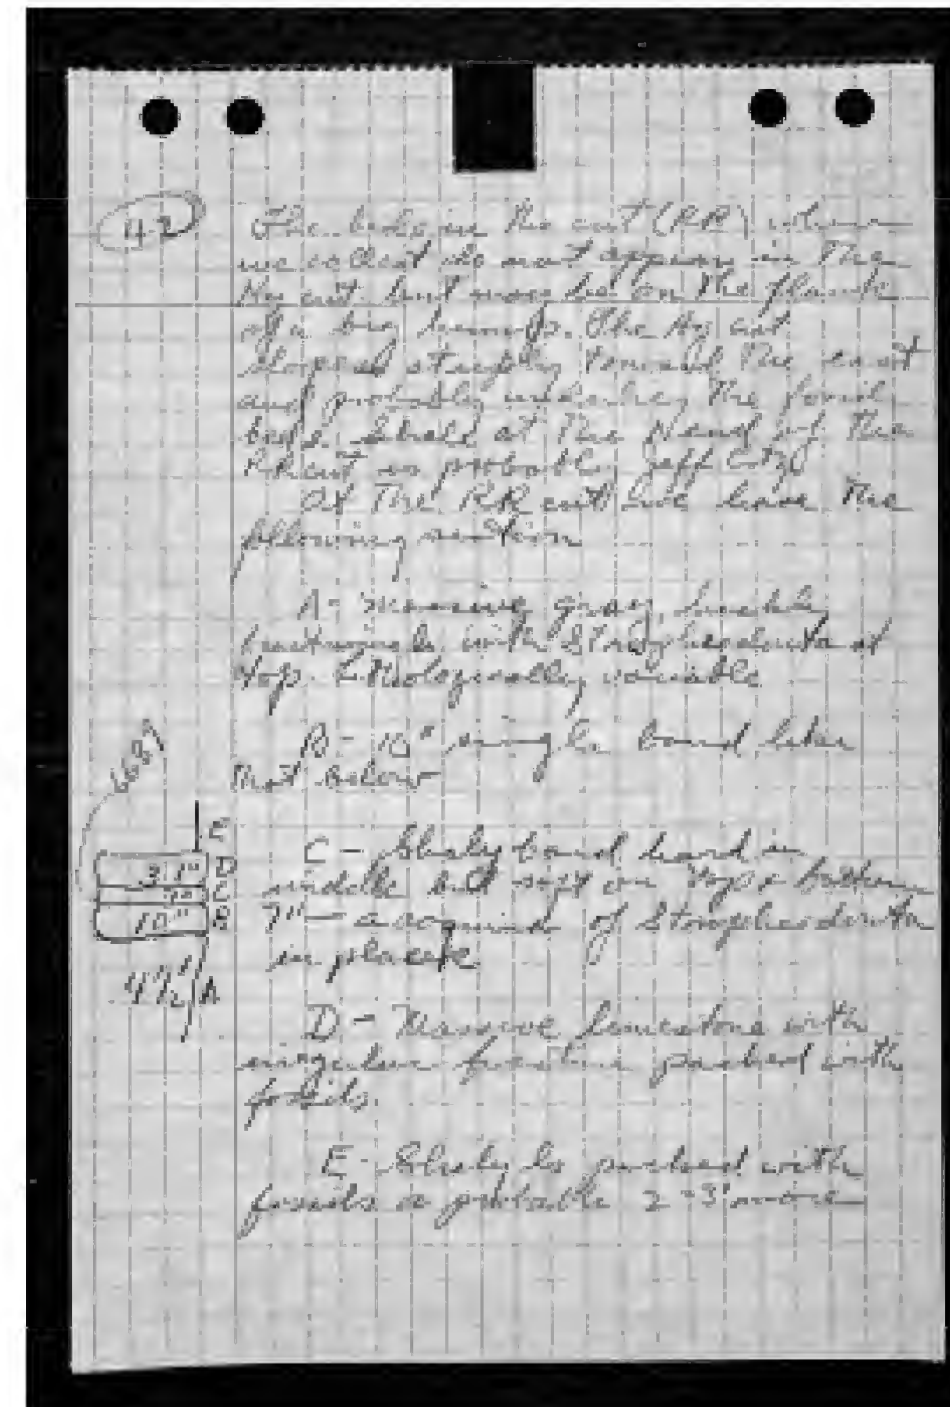 42
The beds in the cut (RR) where
we collect do not appear in the
Hy cut but may be on the flank
of a big hump. The Hy cut
slopes steeply toward the east
and probably underlies the fossil
beds. Shale at the N end of the
RR cut is probably Jeff City.
At the RR cut we have the
following section
A - Massive gray,
with Stropheodonta at
top. Lithologically variable
B - 10" single band like
that below
C - Shaly band hard in
middle but soft on top & bottom
7" - a coquina of Stropheodonta
in place
D - Massive limestone with
irregular fracture packed with
fossils.
E - Shaly ls packed with
fossils a probable 2-3' more
6689
E
31" D
7" C
10" B
4 1/2' A